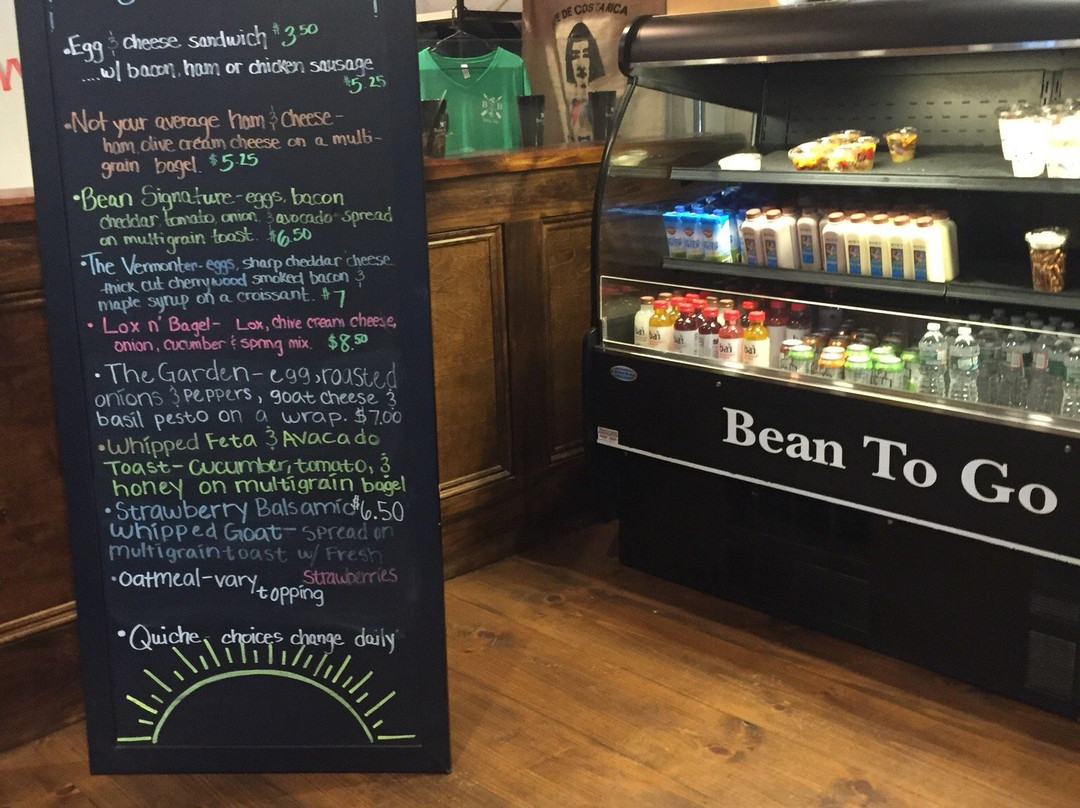 •Egg & cheese sandwich $3.50
....w/ bacon, ham or chicken sausage
$5.25
•Not your average ham & cheese-
ham, olive cream cheese on a multi-
grain bagel. $5.25
•Bean Signature-eggs, bacon
cheddar, tomato, onion, & avocado spread
on multigrain toast. $6.50
•The Vermonter-eggs, sharp cheddar cheese
thick cut cherrywood smoked bacon &
maple syrup on a croissant. $7
• Lox n' Bagel- Lox, chive cream cheese,
onion, cucumber & spring mix. $8.50
•The Garden-egg, roasted
onions & peppers, goat cheese &
basil pesto on a wrap. $7.00
•Whipped Feta & Avacado
Toast-cucumber, tomato, &
honey on multigrain bagel
•Strawberry Balsamic $6.50
whipped Goat- spread on
multigrain toast w/ Fresh
Strawberries
•Oatmeal-vary
topping
•Quiche- choices change daily
DE COSTA RICA
bai
bai
bai
Bean To Go